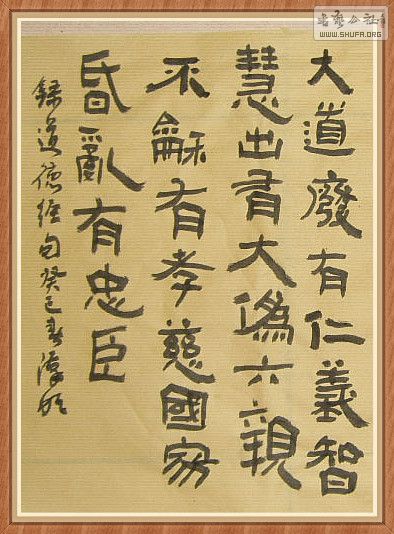 书艺公社
WWW.SHUFA.ORG
大道廢有仁義智
慧出有大偽六親
不龢有孝慈國家
昏亂有忠臣
錄道德經句癸巳春